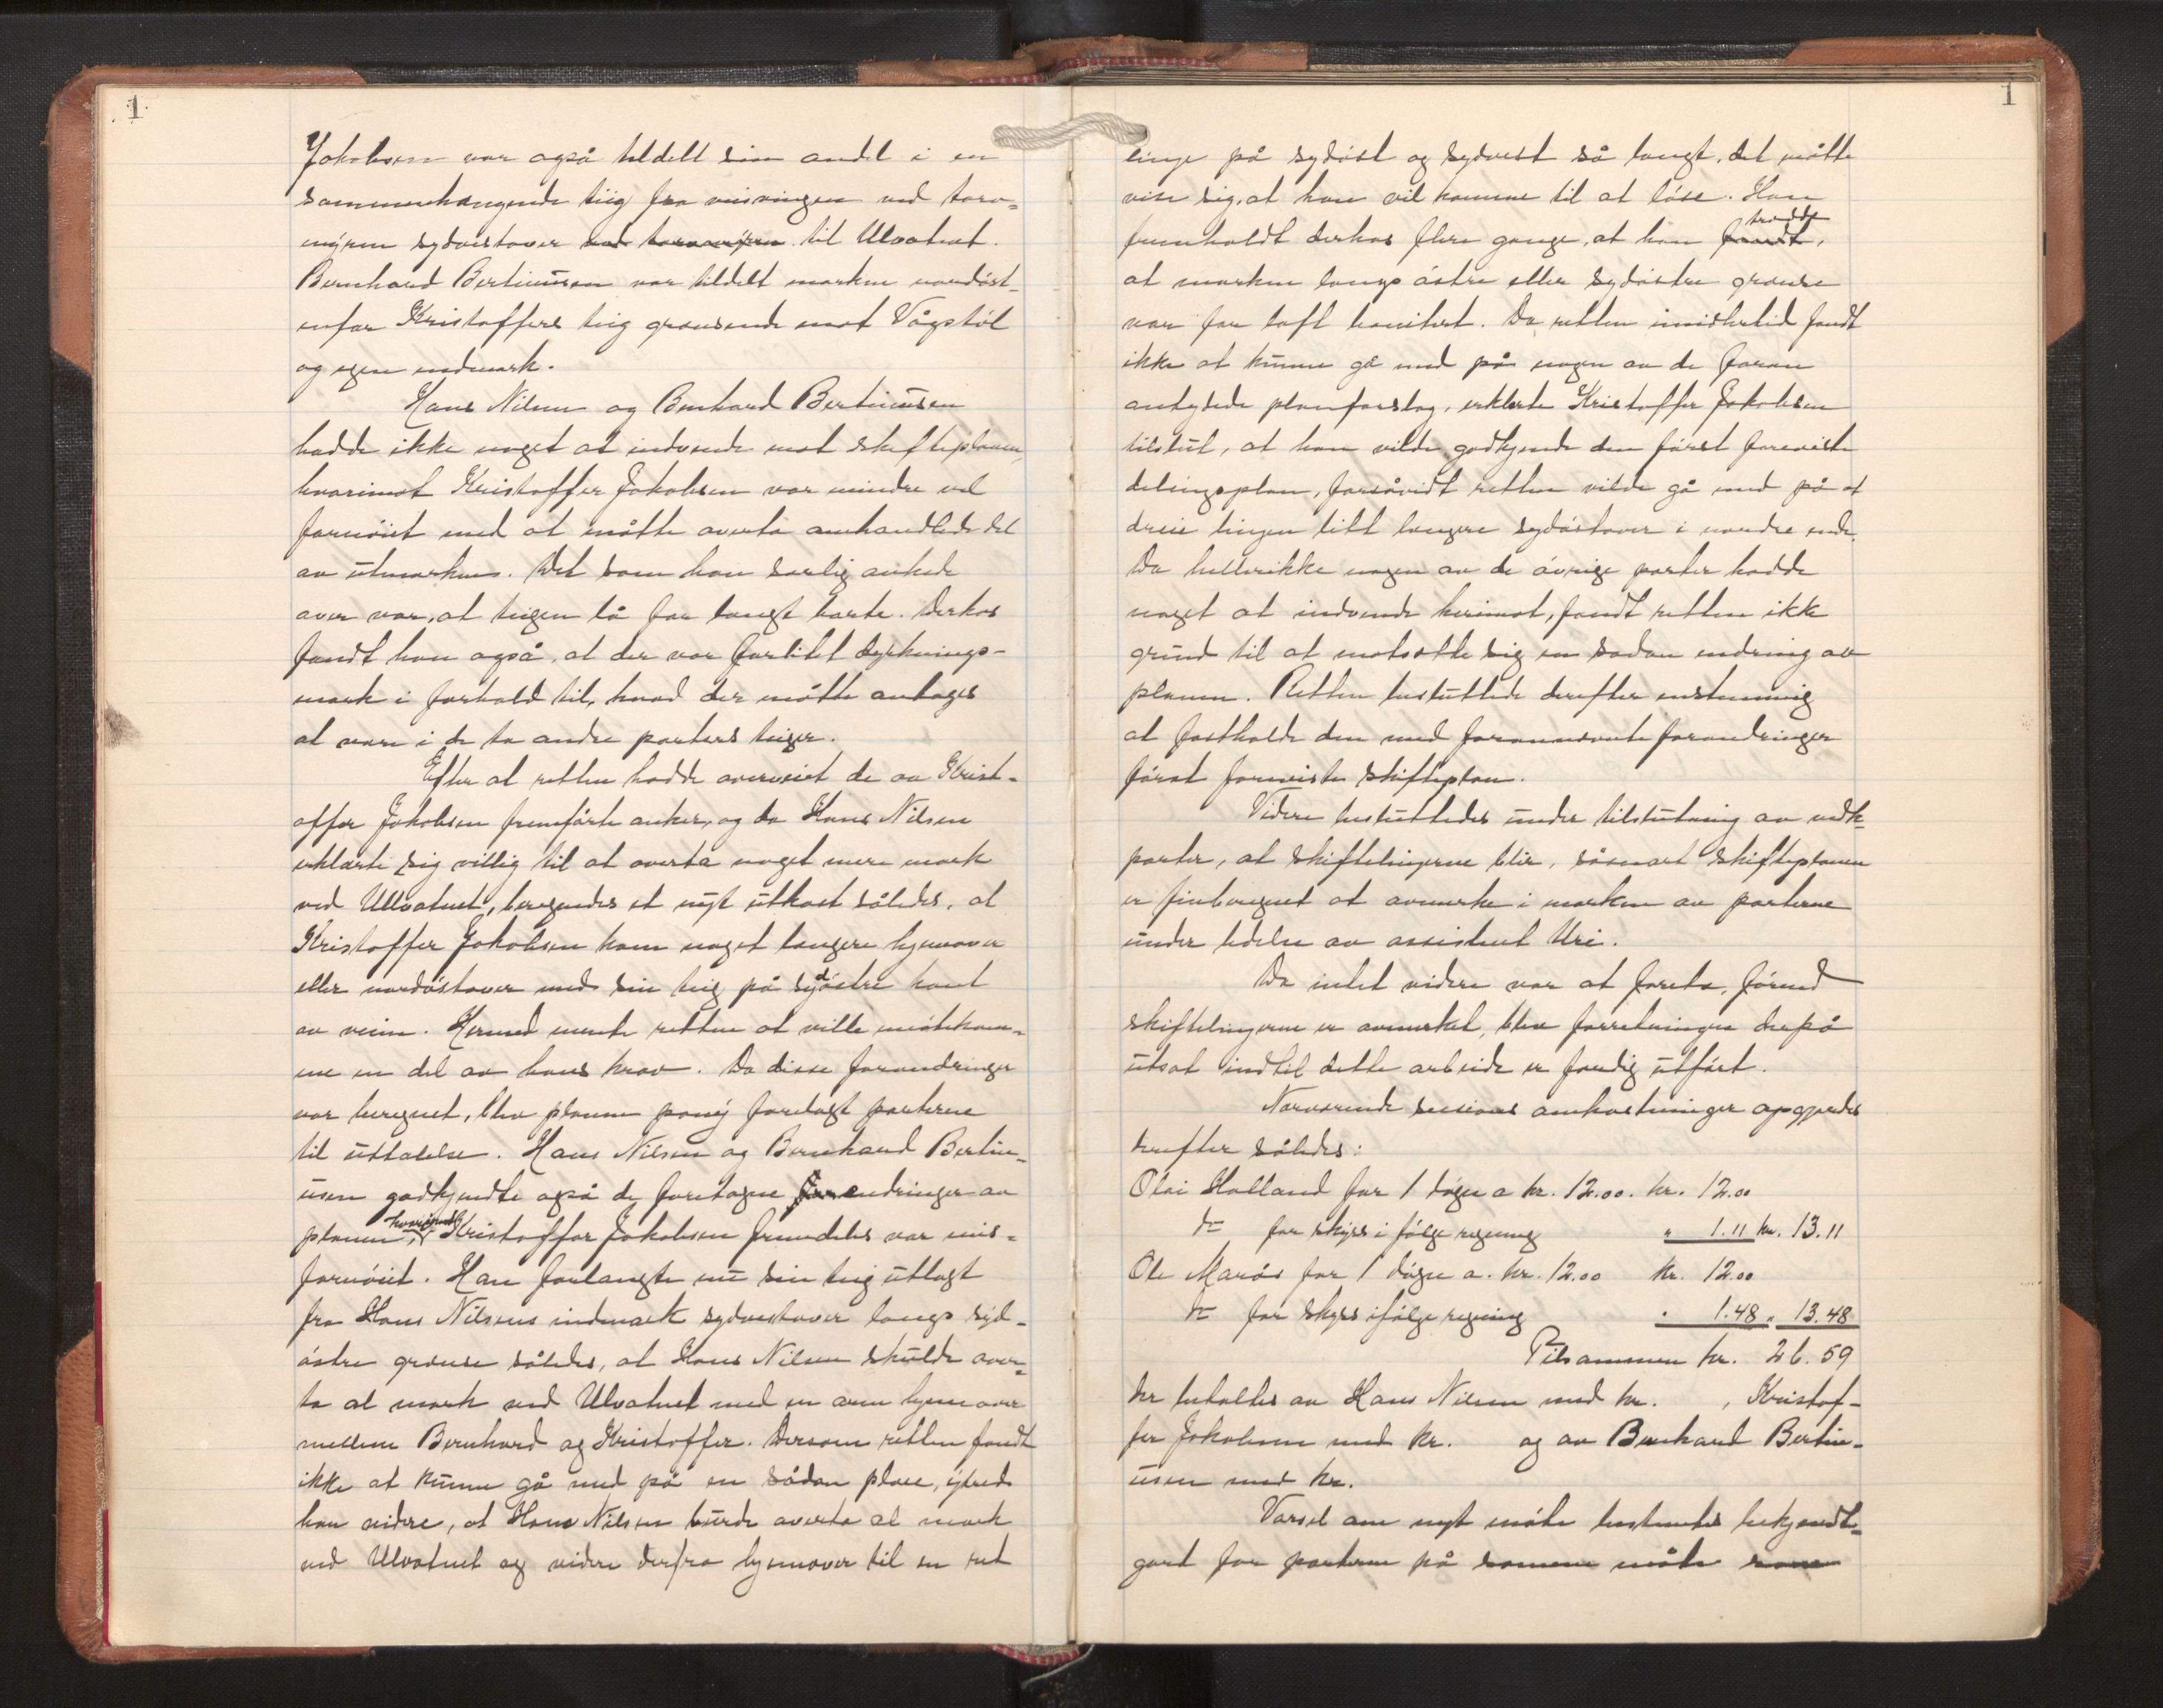 1
Jakobsen var også tildelt sin andel i en
sammenhængende teig fra veisvingen ved torv-
myren sydvestover ved torvmyren til Ulvatnet.
Bernhard Bertinüsen var tildelt marken nordøst-
enfor Kristoffers teig grænsende mot Vågstöl
og egen indmark.
Hans Nilsen og Bernhard Bertinüsen
hadde ikke noget at indvende mot skifteplanen,
hvorimot Kristoffer Jakobsen var mindre vel
fornöiet med at måtte overta omhandlede del
av ütmarken. Det som han særlig ankede
over var, at teigen lå for langt borte. Derhos
fandt han også, at der var forlitet dyrknings-
mark i forhold til, hvad der måtte antages
at være i de to andre parters teiger.
Efter at retten hadde overveiet de av Krist-
offer Jakobsen fremförte anker, og da Hans Nilsen
erklærte sig villig til at overta noget mere mark
ved Ulvatnet, beregnedes et nyt ütkast således, at
Kristoffer Jakobsen kom noget længere hjemover
eller nordöstover med sin teig på sydöstre kant
av veien. Hermed mente retten at ville imötekom-
me en del av hans krav. Da disse forandringer
var beregnet, blev planen påny forelagt parterne
til üttalelse. Hans Nilsen og Bernhard Bertin-
üsen godkjendte også de foretagne forandringer av
planen, hvorimot Kristoffer Jakobsen fremdeles var mis-
fornöiet. Han forlangte nü sin teig ütlagt
fra Hans Nilsens indmark sydvestover langs syd-
östre grænse således, at Hans Nilsen skülde over-
ta al mark ved Ulvatnet med en arm hjemover
mellem Bernhard og Kristoffer. Dersom retten fandt
ikke at künne gå med på en sådan plan, ytred
han videre, at Hans Nilsen bürde overta al mark
ved Ulvatnet og videre derfra hjemover til en ret
1
linje på sydöst og sydvest så langt, det måtte
vise sig, at han vil komme til at löse. Han
fremholdt derhos flere gange, at han fandt, trodde
at marken langs östre eller sydöstre grænse
var for löft bonitert. Da retten imidlertid fandt
ikke at künne gå med på nogen av de foran
antydede planforslag, erklærte Kristoffer Jakobsen
tilslüt, at han vilde godkjende den först foreviste
delingsplan, forsåvidt retten vilde gå med på at
dreie linjen litt længere sydöstover i nordre ende.
Da hellerikke nogen av de övrige parter hadde
noget at indvende herimot, fandt retten ikke
gründ til at motsætte sig en sådan endring av
planen. Retten beslüttede derefter enstemmig
at fastholde den med forannævnte forandringer
först foreviste skifteplan.
Videre beslüttedes ünder tilslütning av vedk.
parter, at skiftelinjerne blir, såsnart skifteplanen
er finberegnet at avmerke i marken av parterne
ünder ledelse av assistent Uri.
Da intet videre var at foreta, förend
skiftelinjerne er avmerket, blev forretningen derpå
ütsat indtil dette arbeide er færdig ütfört.
Nærværende sessions omkostninger opgjordes
derefter således:
Olai Halland for 1 dögn a kr. 12.00. kr. 12.00
do for skyss i fölge regning " 1.11 kr. 13.11
Ole Marås for 1 dögn a. kr. 12.00 kr. 12.00
do for skyss ifölge regning " 1.48 " 13.48
Tilsammen kr. 26.59
der betaltes av Hans Nilsen med kr. , Kristof-
fer Jakobsen med kr. og av Bernhard Bertin-
üsen med kr.
Varsel om nyt möte bestemtes bekjendt-
gjort for parterne på samme måte som